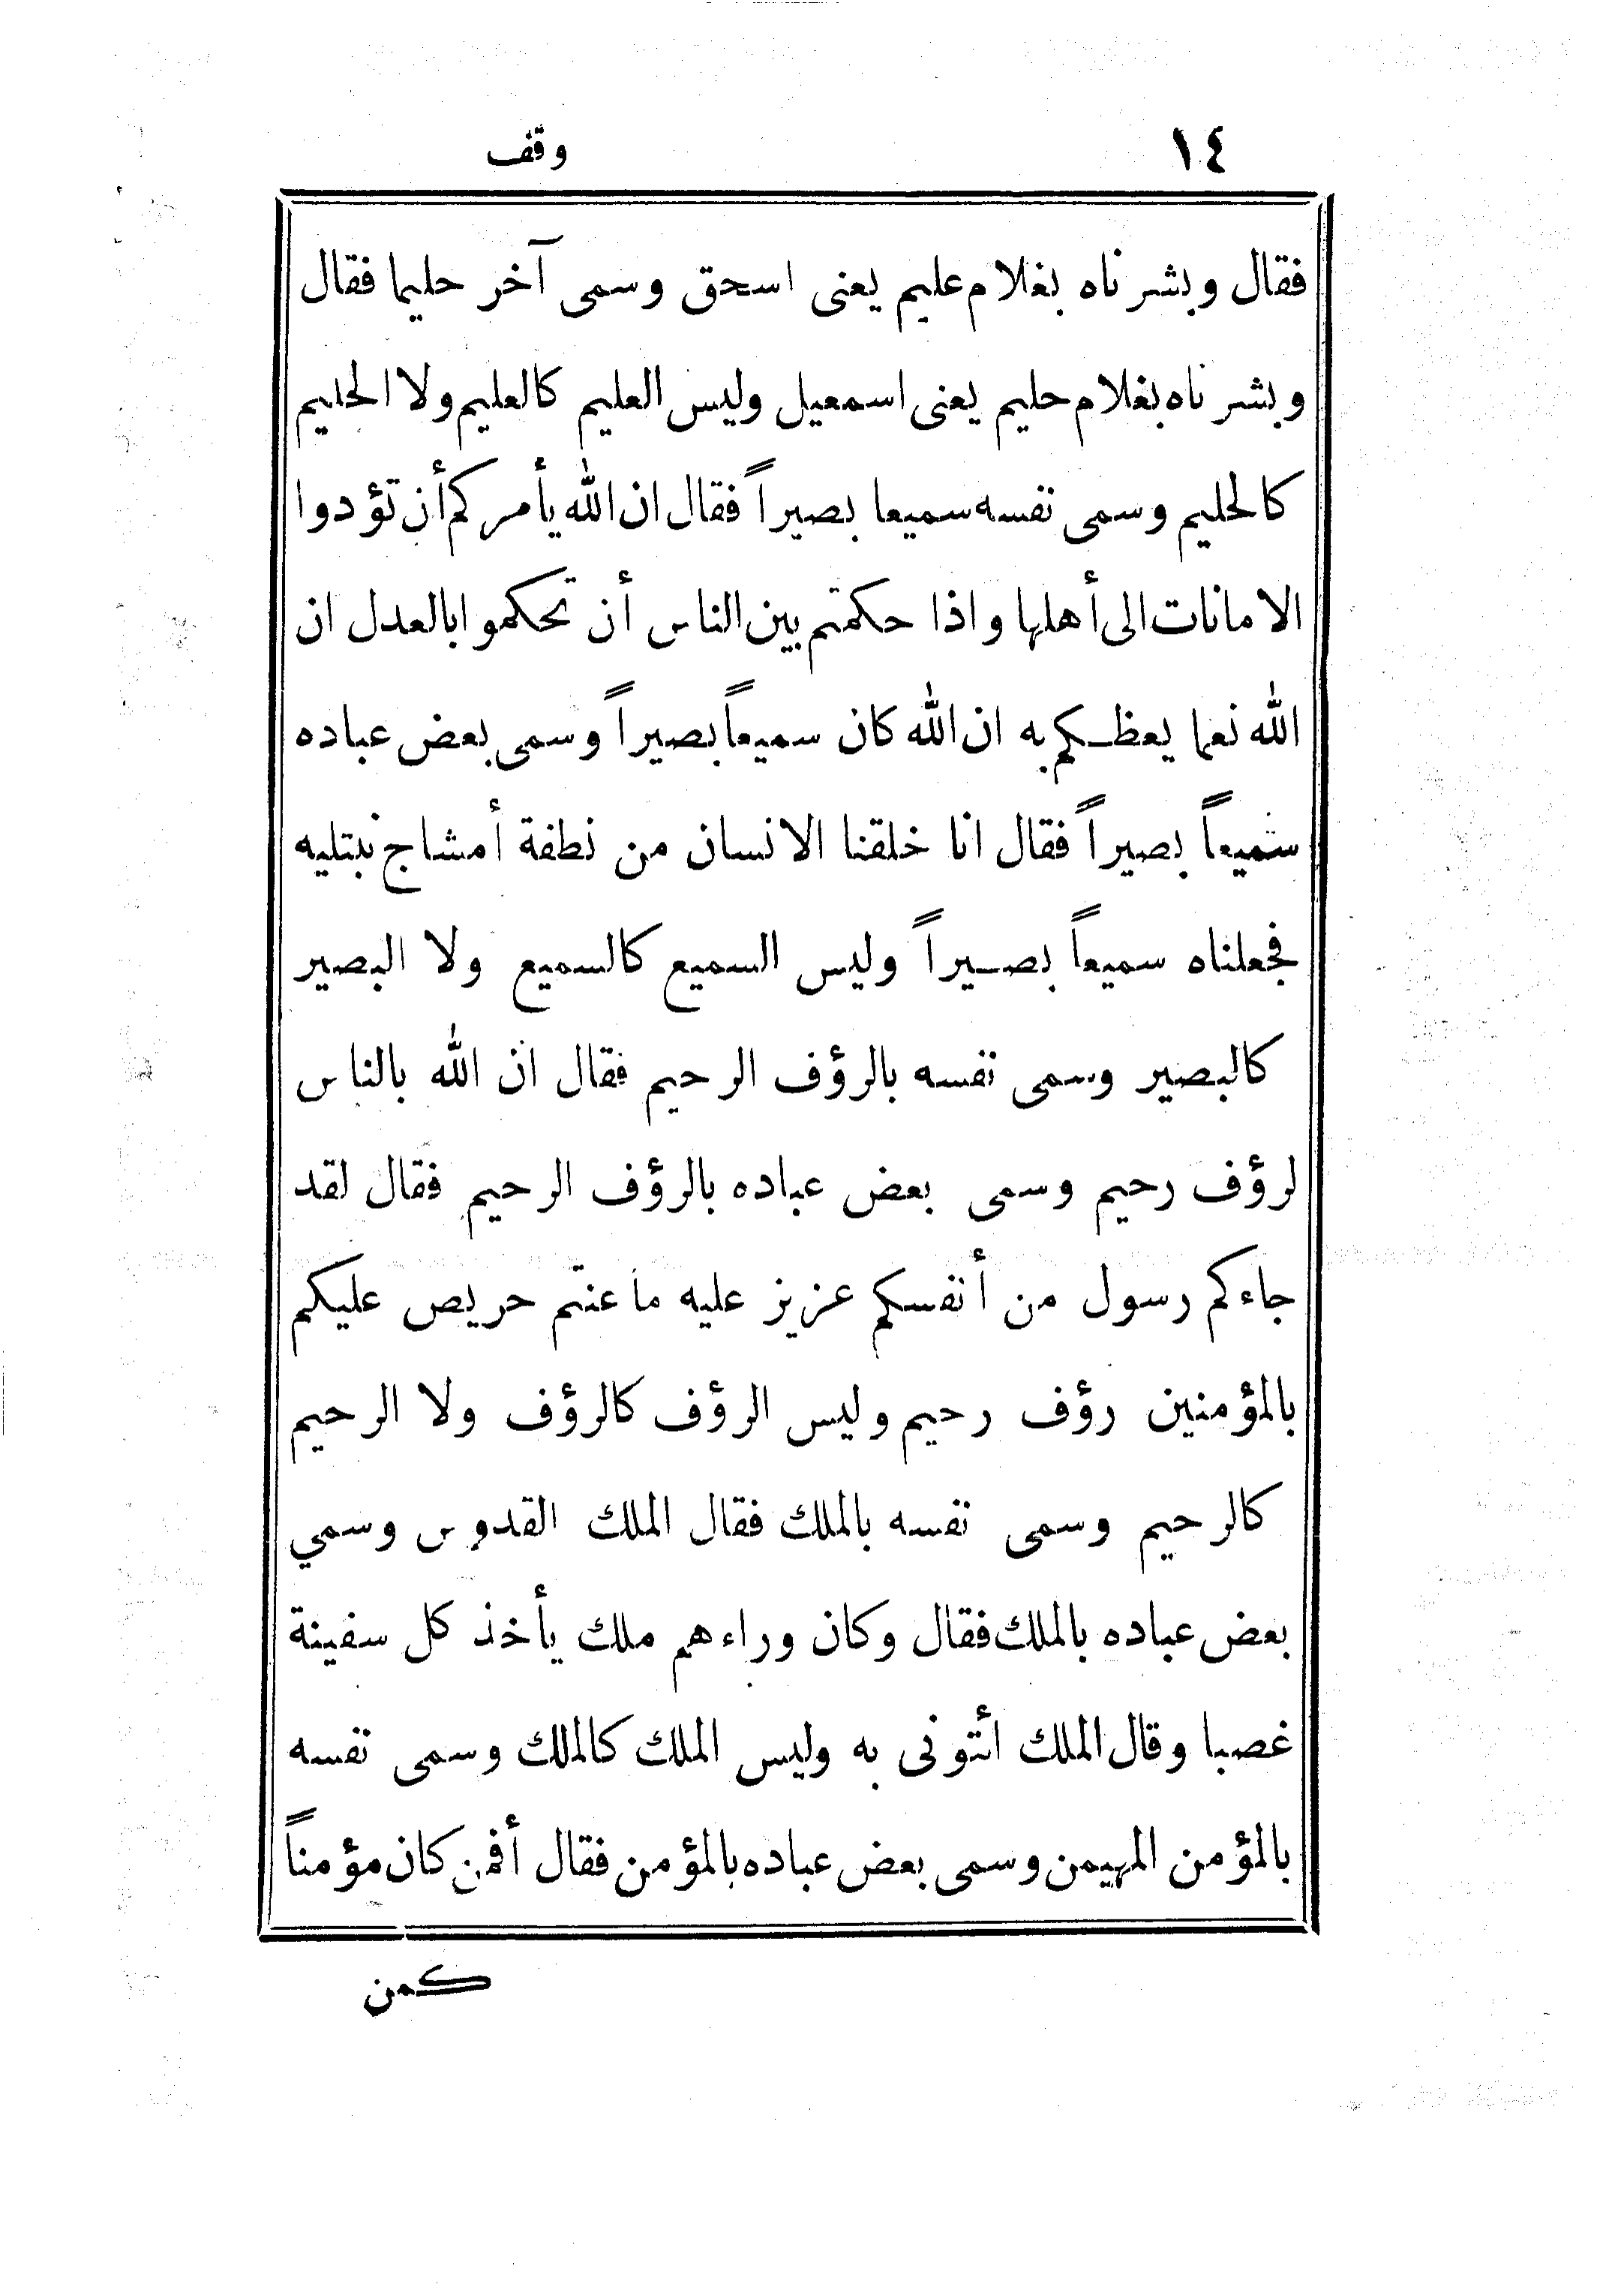 ١٤
وقف
فقال وبشرناه بغلام عليم يعنى اسحق وسمى آخر حليما فقال
وبشرناه بغلام حليم يعنى اسمعيل وليس العليم كالعليم ولا الحليم
كالحليم وسمى نفسه سميعا بصيراً فقال ان الله يأمركم أن تؤدوا
الامانات الى أهلها واذا حكمتم بين الناس أن تحكموا بالعدل ان
الله نعما يعظكم به ان الله كان سميعاً بصيراً وسمى بعض عباده
سميعاً بصيراً فقال انا خلقنا الانسان من نطفة أمشاج نبتليه
فجعلناه سميعاً بصيراً وليس السميع كالسميع ولا البصير
كالبصير وسمى نفسه بالرؤف الرحيم فقال ان الله بالناس
لرؤف رحيم وسمى بعض عباده بالرؤف الرحيم فقال لقد
جاءكم رسول من أنفسكم عزيز عليه ماعنتم حريص عليكم
بالمؤمنين رؤف رحيم وليس الرؤف كالرؤف ولا الرحيم
كالرحيم وسمى نفسه بالملك فقال الملك القدوس وسمي
بعض عباده بالملك فقال وكان وراءهم ملك يأخذ كل سفينة
غصبا وقال الملك أئتونى به وليس الملك كالملك وسمى نفسه
بالمؤمن المهيمن وسمى بعض عباده بالمؤمن فقال أفمن كان مؤمناً
كمن